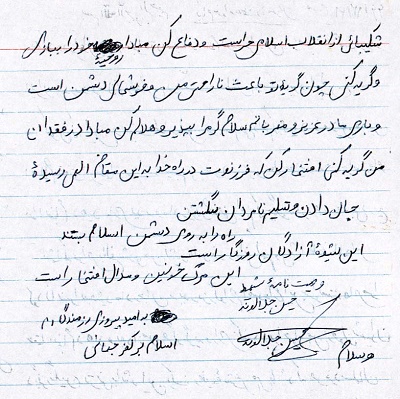 شکیبائی از انقلاب اسلامی حراست و دفاع کن مبادا روحیهٔ خود را ببازی
و گریه کنی چون گریه تو باعث ناراحتی من و خوشحالی دشمن است
و باری مادر عزیز و مهربانم سلام گرم را بپذیر و حلالم کن مبادا در فقدان
من گریه کنی افتخار کن که فرزندت در راه خدا به این مقام الهی رسیده
جان دادن و تسلیم نامردان نگشتن
راه را به روی دشمن اسلام بستند
این شیوهٔ آزادگان روزگار است
این مرگ خونین و مدال افتخار است
وصیت نامهٔ شهید
به امید پیروزی رزمندگان
اسلام بر کفر جهانی
والسلام